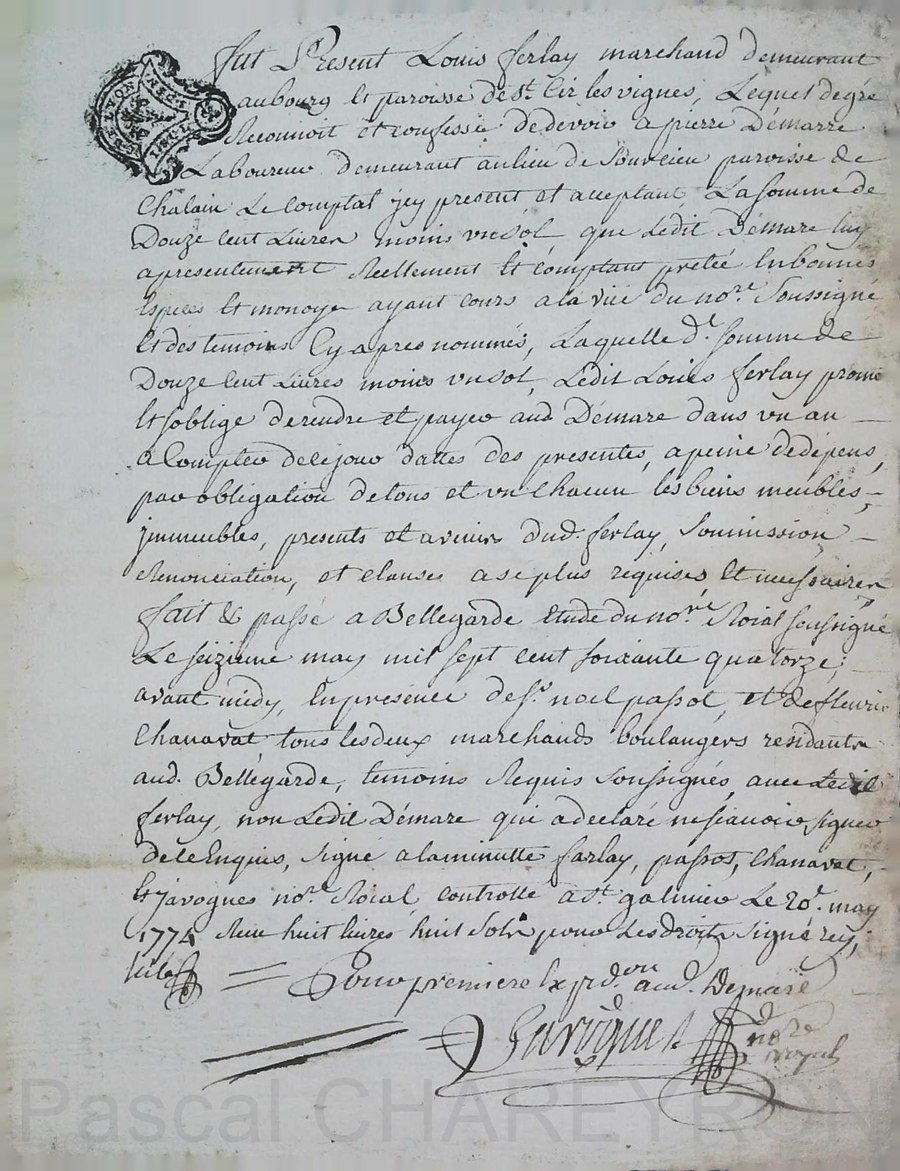 fut Present Louis ferlay marchand demeurant
aubourg Et paroisse de St. Cir les vignes, Lequel degré
Reconnoit et confesse dedevoir a pierre Démarre
Laboureur demeurant aulieu de Souvcieu paroisse de
Chalain Le Comptal jcy present et acceptant, La somme de
Douze Cent Livres moins un Sol, que Ledit Démare luy
apresentement Reellement Et comptant pretée Enbonnes
Especes Et monoye ayant Cours a la vüe du nore. Soussigné
Et des temoins Cy apres nommés, Laquelle de. somme de
Douze Cent Livres moins un Sol, Ledit Louis ferlay promet
Et soblige derendre et payer aud Démare dans un an
a Compter decejour dattes des presentes, apeine dedépens,
par obligation detous et un Chacun les biens meubles,
jmmeubles, presents et avenir dud. ferlay, Soumission
Renonciation, et clauses a ce plus requises Et necessaires
fait & passé a Bellegarde Etude du nore. Roial soussigné
Le seizieme may mil sept cent soixante quatorze,
avant midy, En presence de Sr. noel passot, et de fleurie
Chanavat tous lesdeux marchands boulangers residants
aud. Bellegarde, temoins Requis Soussignés, avec Ledit
ferlay, non Ledit Démare qui a declaré nesçavoir signer
dece Enquis, Signé alaminutte farlay, passot, Chanavat,
Et javogues nore. Roial, controllé a St. galmier Le 20e. may
1774 Reçu huit livres huit Sols pour Les droits Signé rey,
Pour premiere Expdon aud. Demare
Javogues
nore
royal
LYON
Pascal CHAREYRON